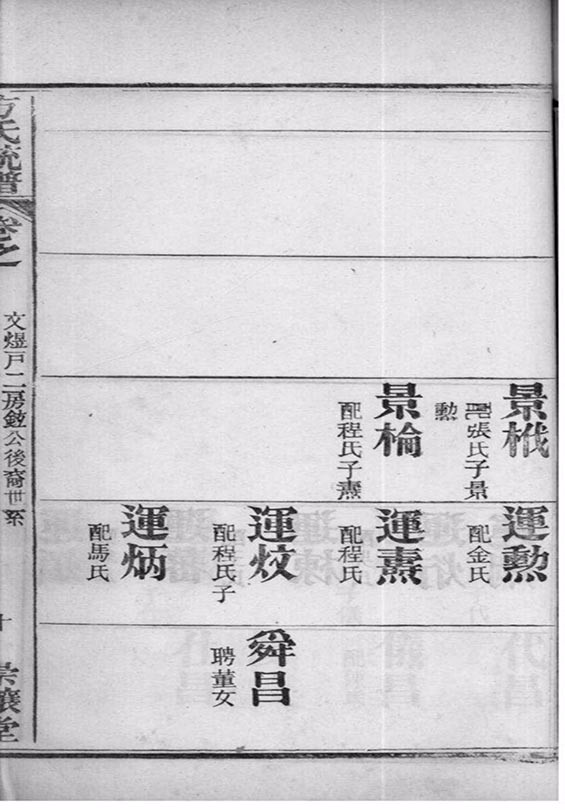 景栰
張氏子景
勲
景棆
配程氏子燾
運勲
配金氏
運燾
配程氏
運炆
配程氏子
運炳
配馬氏
舜昌
聘董女
方氏統譜
卷之
文煜戸二房公後裔世系
十